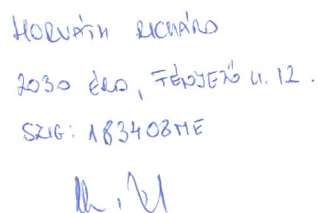 HORVÁTH RICHÁRD
2030 ÉRD, FÉNYEZŐ U. 12.
SZIG: 183408ME